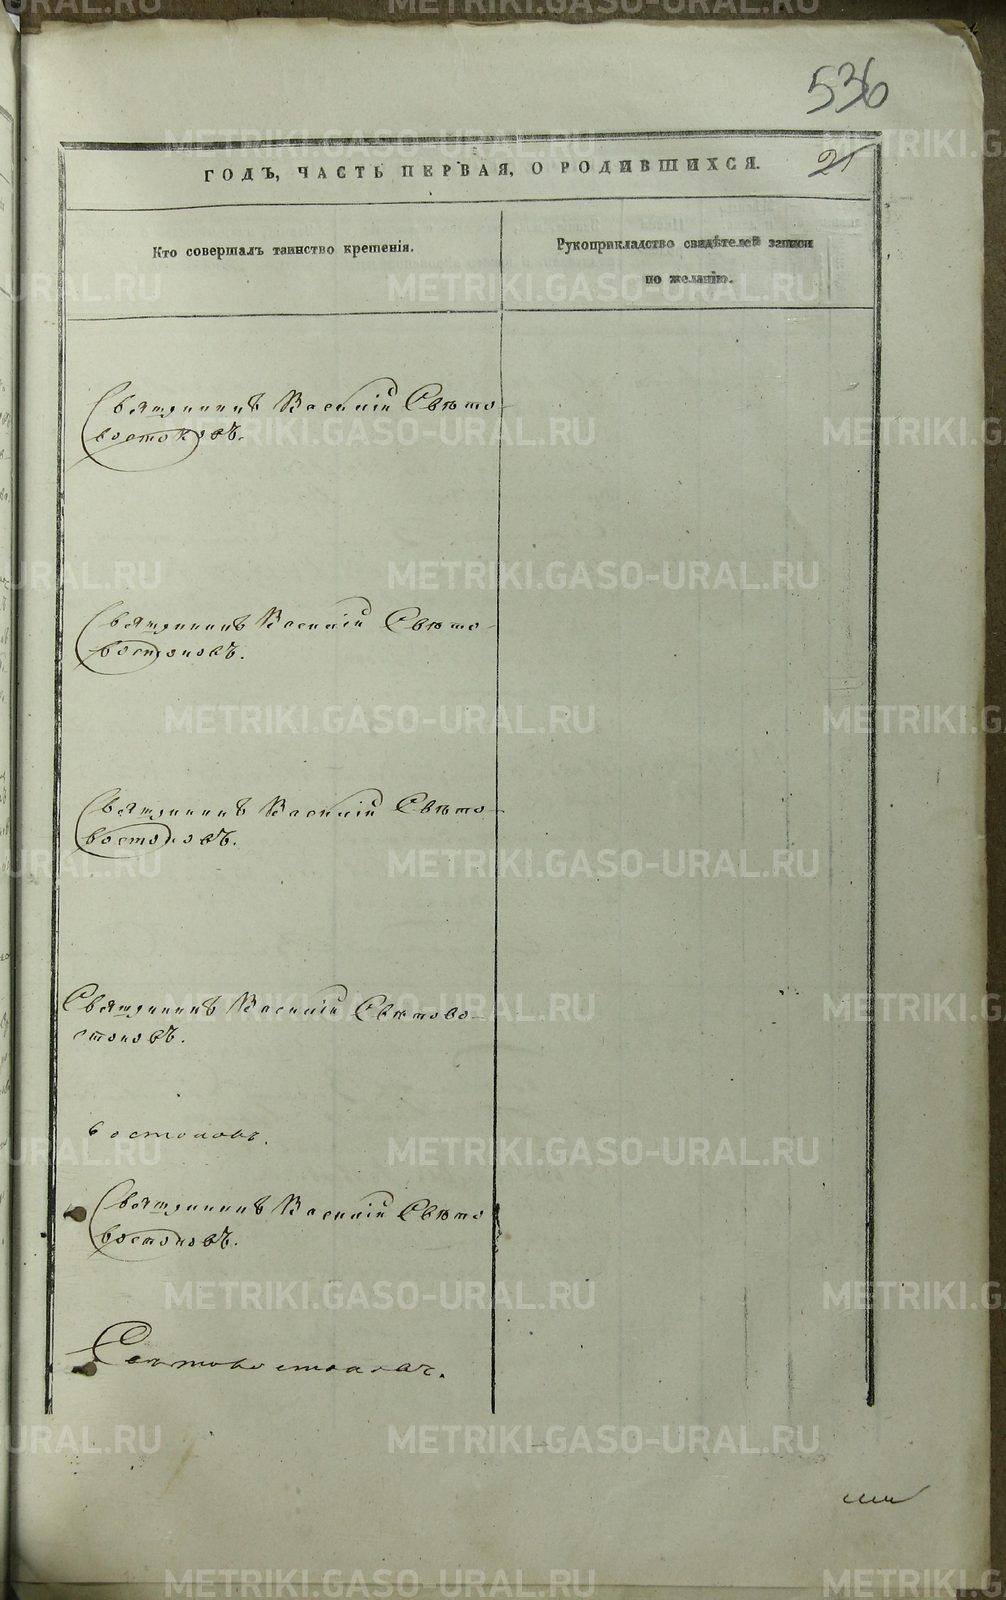 536
ГОДЪ, ЧАСТЬ ПЕРВАЯ, О РОДИВШИХСЯ.
21
Кто совершалъ таинство крещенія.
Рукоприкладство свидѣтелей записи
по желанію.
Священникъ Василій Свѣто-
востоковъ.
Священникъ Василій Свѣто-
востоковъ.
Священникъ Василій Свѣто-
востоковъ.
Священникъ Василій Свѣтово-
стоковъ.
востоковъ.
Священникъ Василій Свѣто
востоковъ.
Свѣтовостоковъ.
METRIKI.GASO-URAL.RU